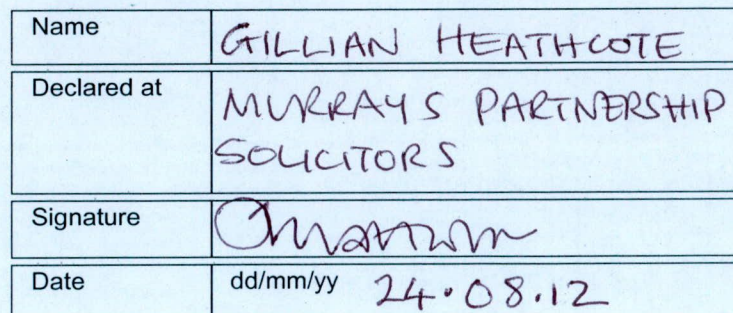 Name GILLIAN HEATHCOTE
Declared at MURRAYS PARTNERSHIP
SOLICITORS
Signature
Date dd/mm/yy 24.08.12